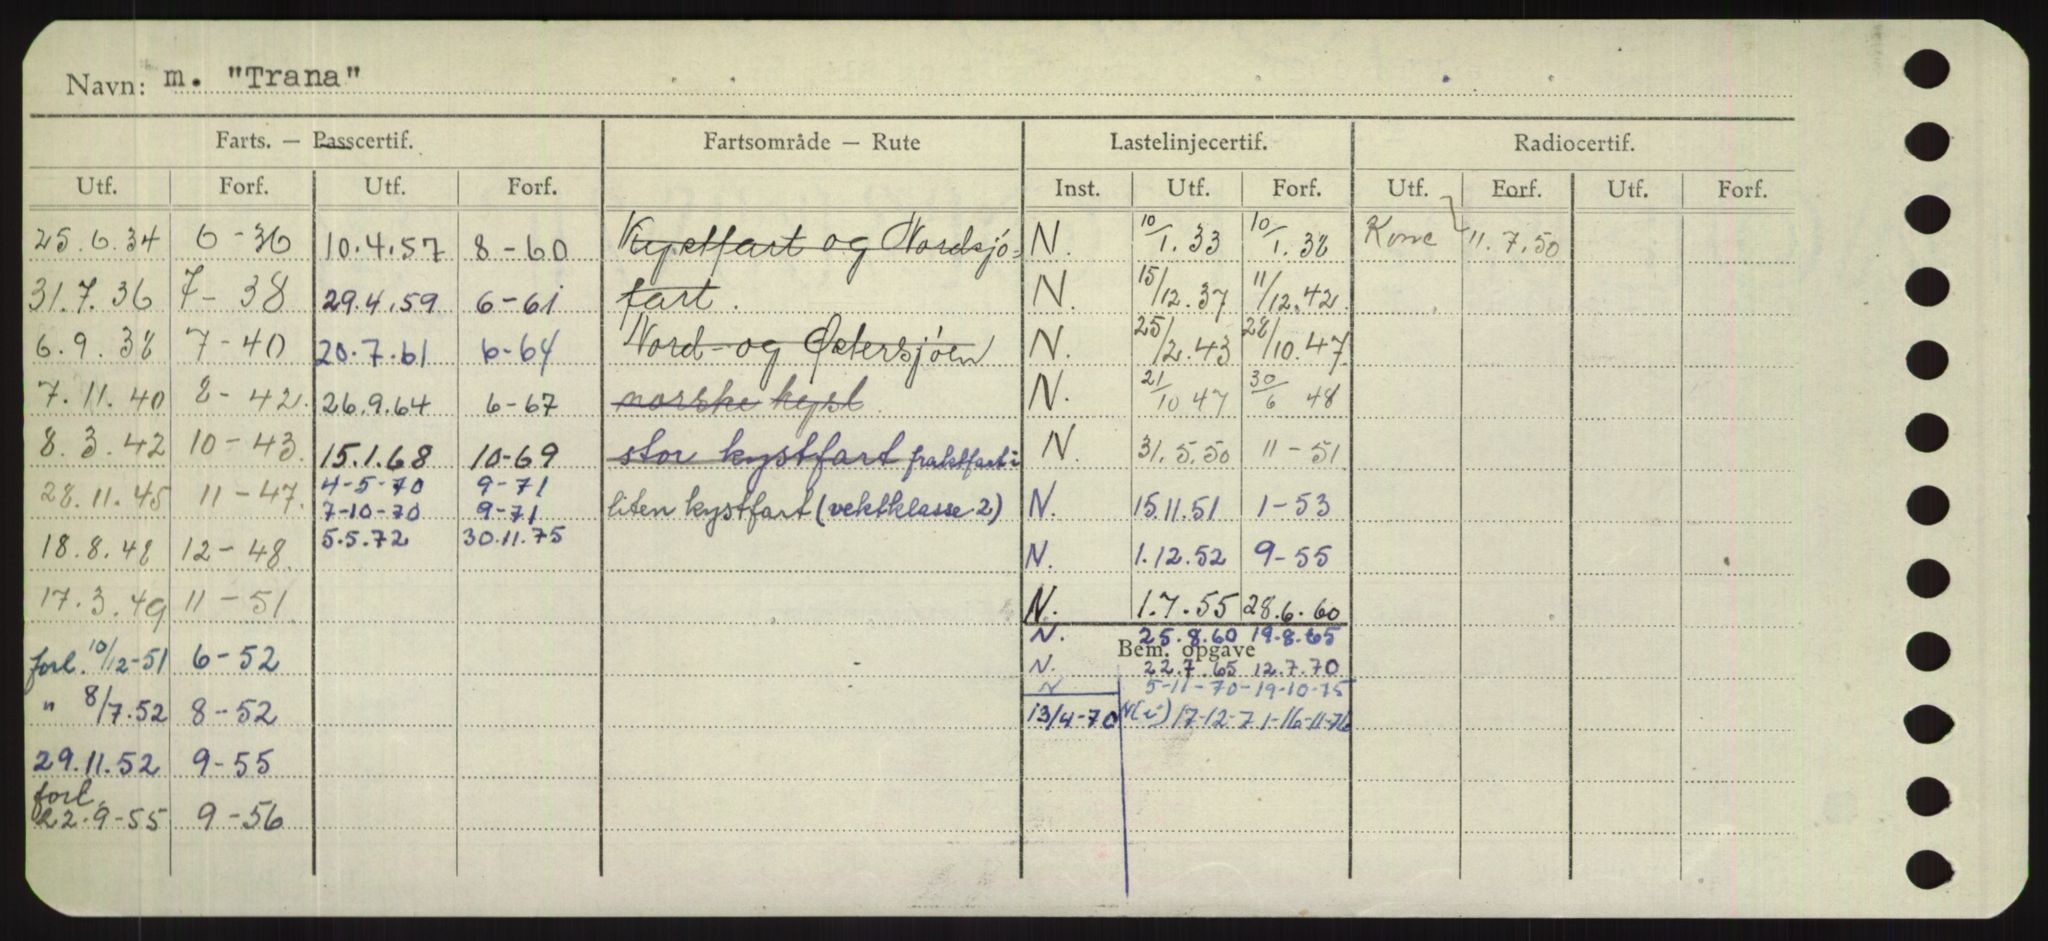 Navn: m. "Trana"
Farts. — Passcertif. Fartsområde — Rute Lastelinjecertif. Radiocertif.
Utf. Forf. Utf. Forf. Inst. Utf. Forf. Utf. Forf. Utf. Forf.
25.6.34 6-36 10.4.57 8-60 Kystfart og Nordsjø- N. 10/1.33 10/1.38 11.7.50
31.7.36 7-38 29.4.59 6-61 fart. N. 15/12.37 11/12.42
6.9.38 7-40 20.7.61 6-64 Nord- og Østersjøen N. 25/2.43 28/10.47
7.11.40 8-42. 26.9.64 6-67 norske kyst. N. 21/10 47 30/6 48
8.3.42 10-43. 15.1.68 10-69 stor kystfart fraktfart i N. 31.5.50 11-51
4-5-70 9-71
28.11.45 11-47. 7-10-70 9-71 liten kystfart (vektklasse 2) N. 15.11.51 1-53
18.8.48 12-48. 5.5.72 30.11.75 N. 1.12.52 9-55
17.3.49 11-51 N. 1.7.55 28.6.60
N. 25.8.60 19.8.65
Bem. opgave
forl. 10/12-51 6-52 N. 22.7.65 12.7.70
N 5-11-70-19-10-75
" 8/7.52 8-52 13/4-70 N(i) 17-12-71-16-11-76
29.11.52 9-55
forl.
22.9-55 9-56